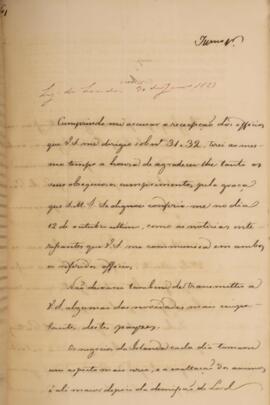 Cumprindo me accusar a recepção dos officios
que V.S. me dirigio sob nos 31 e 32, terei ao mes-
mo tempo a honra de agradecer lhe tanto os
seus obsequiosos cumprimentos, pela graça
que S.M.I. Se dignou conferir me no dia
12 de outubro ultimo, como as noticias inte-
ressantes que V.S. me communica em ambos
os referidos officios.
Não deixarei tambem de transmettir a
V.S. algumas das novidades mais impor-
tantes destes paizes.
Os negocios da Irlanda cada dia tomam
um aspecto mais serio, e a exaltação dos animos
é ali maior depois da demissão de Lord